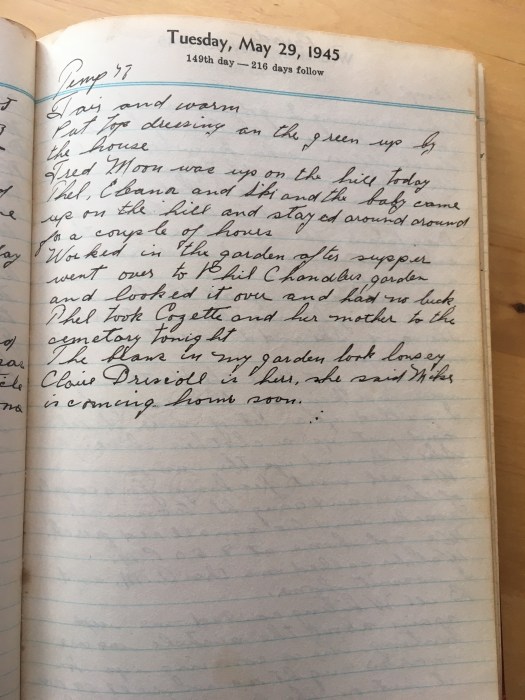 Tuesday, May 29, 1945
149th day — 216 days follow
Temp 47
Fair and warm
Put top dressing on the green up by
the house
Fred Moon was up on the hill today
Phil, Eleanor and and the baby came
up on the hill and stayed around around
for a couple of hours
Worked in the garden after supper
went over to Phil Chandlers garden
and looked it over and had no luck
Phil took Cozette and her mother to the
cemetary tonight
The in my garden look lousey
Claire Driscoll is here, she said Mike
is coming home soon.